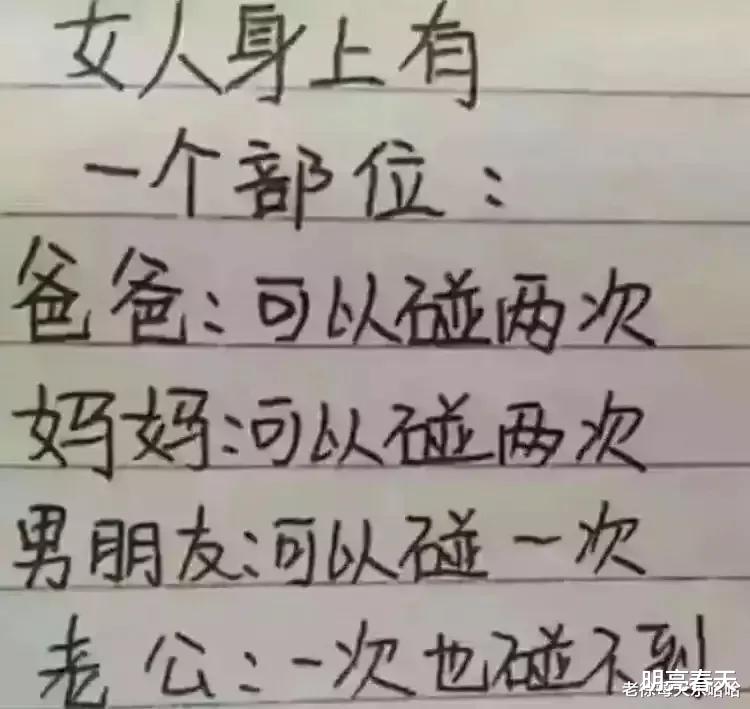 女人身上有
一个部位：
爸爸：可以碰两次
妈妈：可以碰两次
男朋友：可以碰一次
老公：一次也碰不到
明亮春天